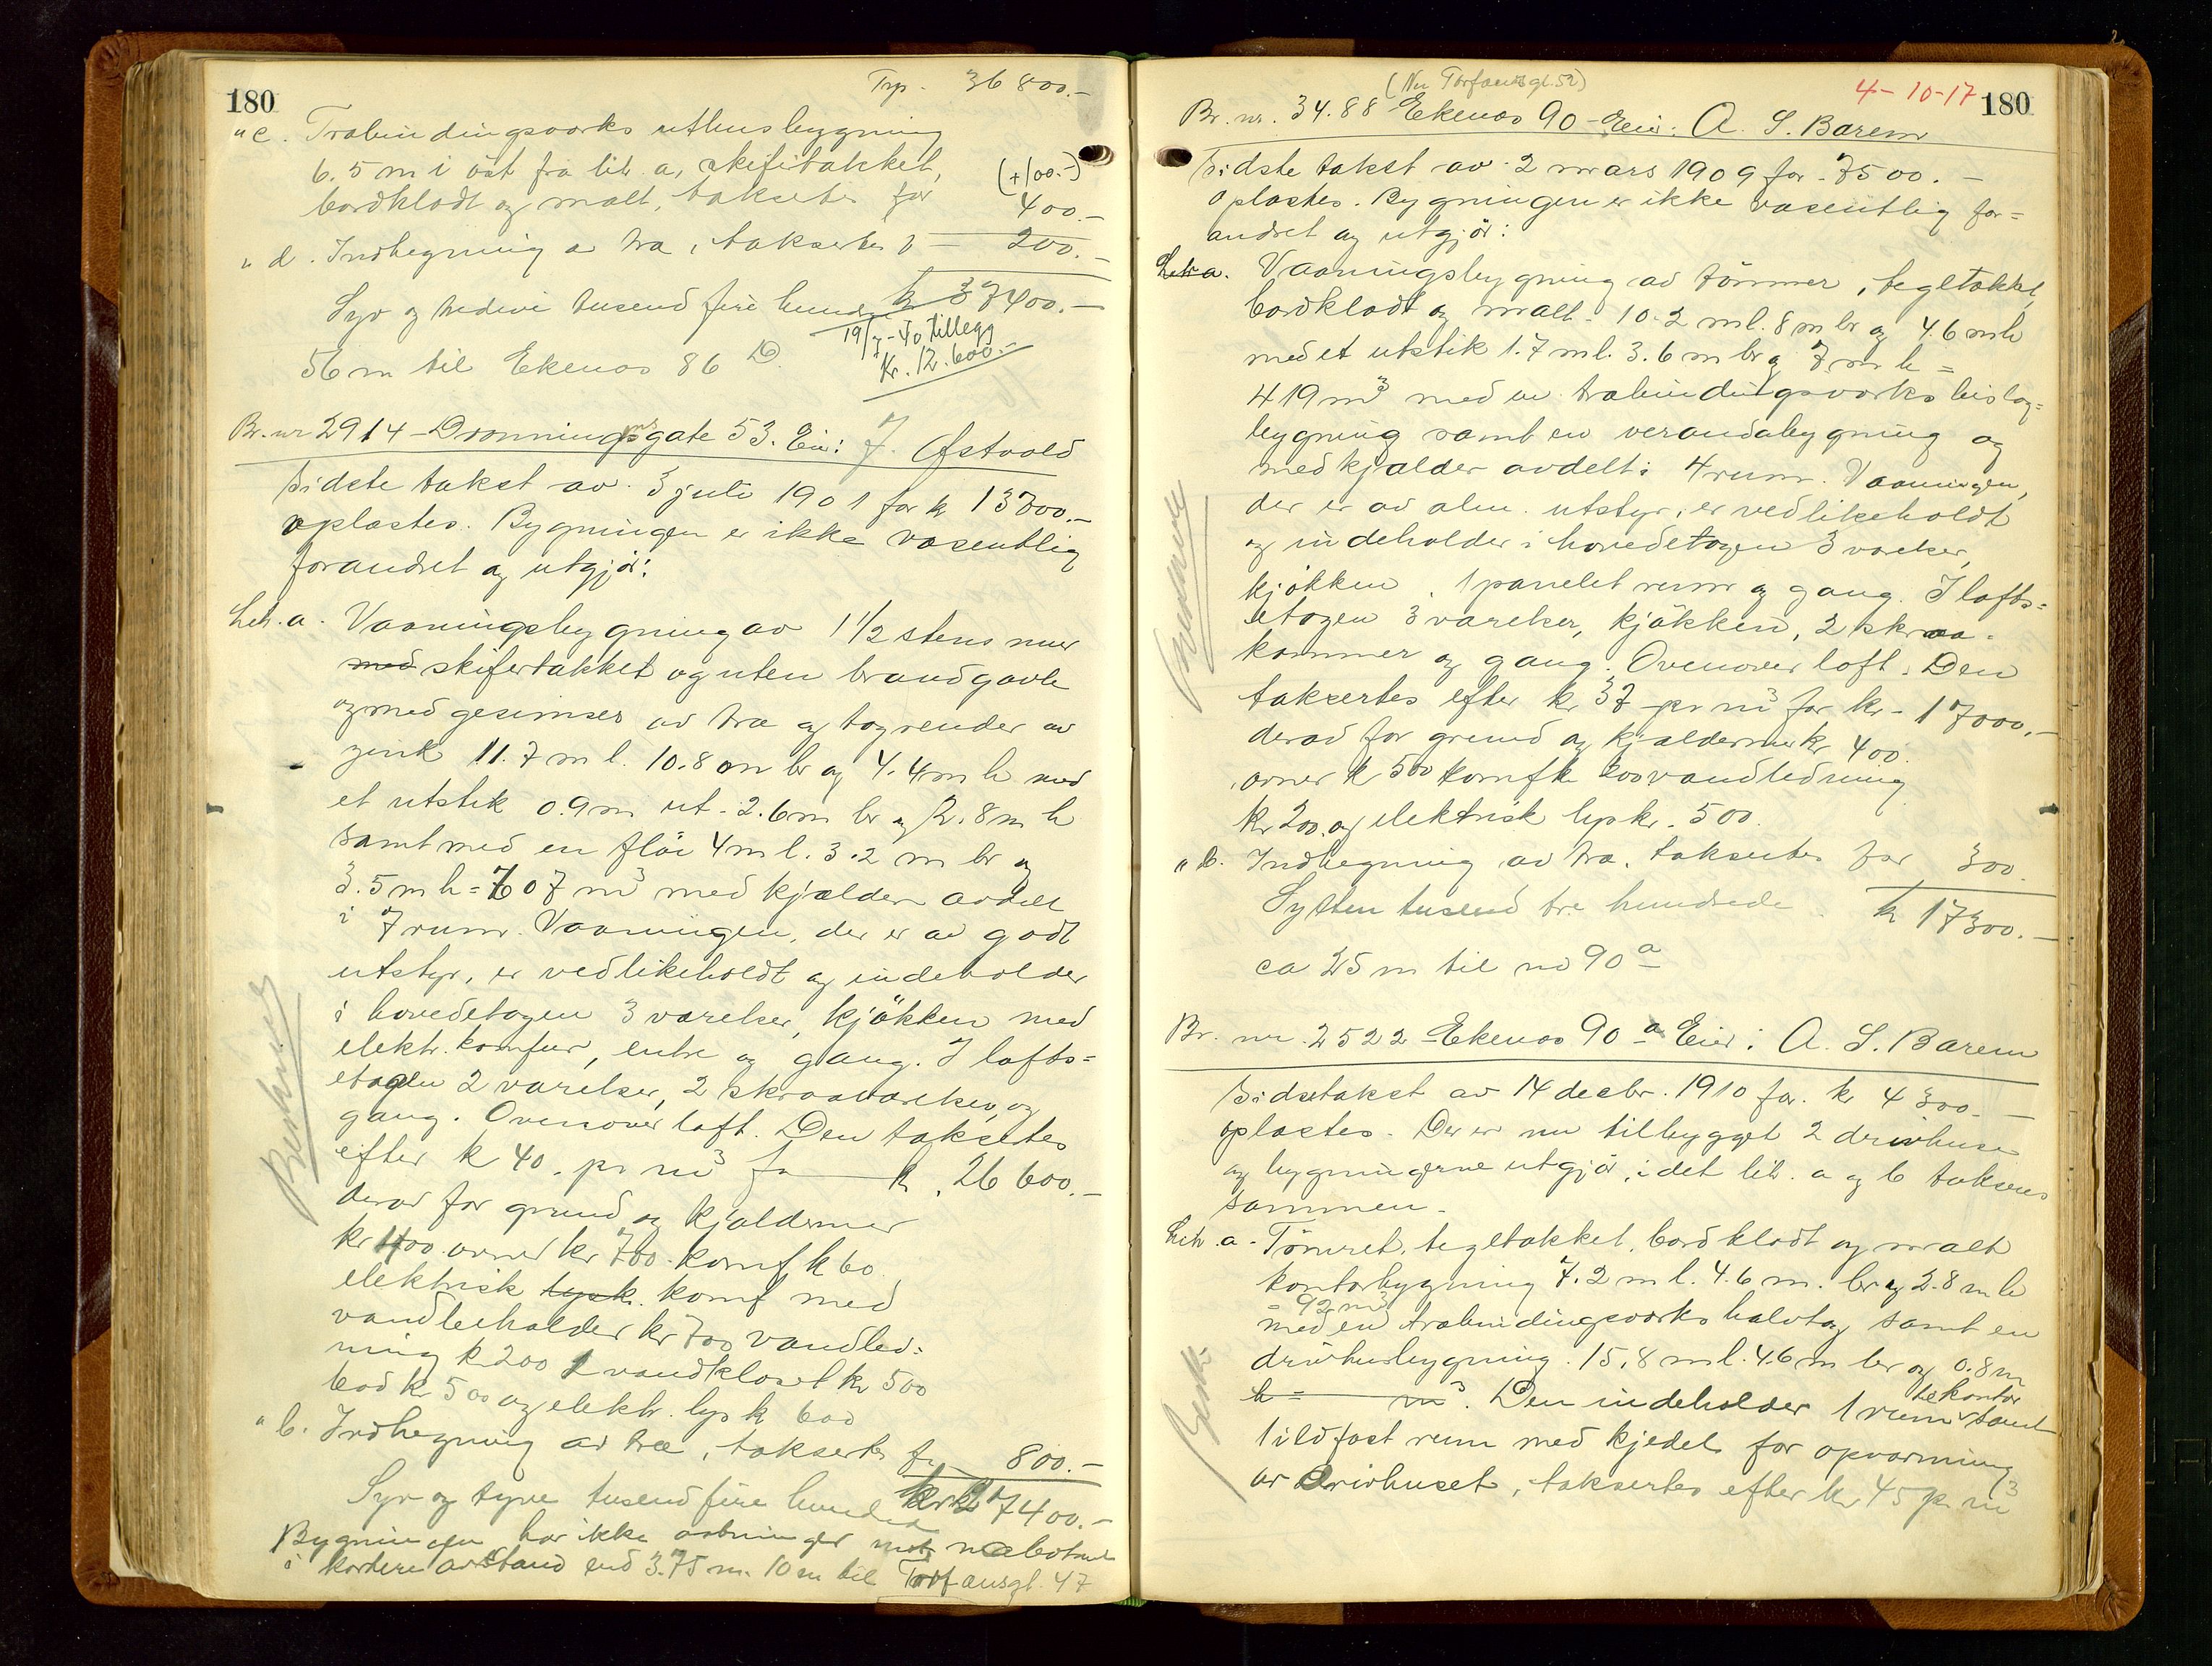 180
Trp. 36 800.-
" c. Træbindingsværks uthusbygning
6.5 m i øst fra lit a, skifertækket,
bordklædt og malt, takseres for 400.-
(+100.-)
" d. Indhegning av træ, takseres f - 200.-
Syv og tredive tusend fire hundre k 37400.-
19/7-40 tillegg
Kr. 12.600.-
56 m til Ekenæs 86 D.
Br. nr 2914 - Dronningensgate 53. Eier: J. Østvold
Sidste takst av 3 juli 1901 for kr 13700.-
oplæstes. Bygningen er ikke væsentlig
forandret og utgjør:
Litr. a. Vaaningsbygning av 1 1/2 stens mur
med skifertækket og uten brandgavle
og med gesimser av træ og tagrender av
zink 11.7 m l. 10.8 m br og 4.4 m h med
et utstik 0.9 m ut - 2.6 m br og 2.8 m h
samt med en fløi 4 m l. 3.2 m br og
3.5 m h = 607 m3 med kjælder avdelt
i 7 rum. Vaaningen, der er av godt
utstyr, er vedlikeholdt og indeholder
i hovedetagen 3 værelser, kjøkken med
elektr. komfur, entre og gang. I lofts=
etagen 2 værelser, 2 skraaværelser, og
gang. Ovenover loft. Den takseres
efter k 40. pr m3 for k. 26 600.-
derav for grund og kjældermur
kr 1400 ovner kr 700. komf k 60
elektrisk lysk. komf med
vandbeholder kr 700 vandled=
ning k 200 1 vandkloset kr 500
bad kr 500 og elektr. lys k 600
" b. Indhegning av træ, takseres for 800.-
Syv og tyve tusend fire hundred kr 27400.-
Bygningen har ikke aabninger mot nabotomt
i kortere avstand end 3.75 m. 10 m til Torfansgt. 47
Beskrives
4-10-17
180
(Nu Torfæusgt. 52)
Br. nr. 34.88 Ekenæs 90 - Eier: A. S. Barem
Sidste takst av 2 mars 1909 for 7500.-
oplæstes. Bygningen er ikke væsentlig for=
andret og utgjør:
Litr a. Vaaningsbygning av tømmer, tegltækket,
bordklædt og malt - 10.2 m l. 8 m br og 4.6 m h
med et utstik 1.7 m l. 3.6 m br og 7 m h =
419 m3 med en træbindingsværks bislag=
bygning samt en verandabygning og
med kjælder avdelt i 4 rum. Vaaningen,
der er av alm. utstyr, er vedlikeholdt
og indeholder i hovedetagen 3 værelser,
kjøkken, 1 panelet rum og gang. I lofts=
etagen 3 værelser, kjøkken, 2 skraa=
kammer og gang. Ovenover loft. Den
takseres efter kr 37 pr m3 for kr - 17000.-
derav for grund og kjældermur kr 400.
ovner k 500 komf k 200 vandledning
kr 200. og elektrisk lys kr. 500.
" b. Indhegning av træ, takseres for 300.
Sytten tusend tre hundrede k 17300.-
ca 25 m til no 90 a
Br. nr. 2522 Ekenæs 90 a Eier: A. S. Barem
Sidste takst av 14 decbr. 1910 for kr 4300.-
oplæstes. Der er nu tilbygget 2 drivhuse
og bygningerne utgjør, i det lit. a og b takseres
sammen.
Litr. a. Tømret, tegltækket, bordklædt og malt
kontorbygning 7.2 m l. 4.6 m. br og 2.8 m h
= 92 m3
med en træbindingsværks halvtag samt en
drivhusbygning. 15.8 m l. 4.6 m br og 0.8 m
h = m3. Den indeholder 1 rum til kontor samt
1 ildfast rum med kjedel for opvarmning
av drivhuset, takseres efter kr 45 pr m3
Besk.